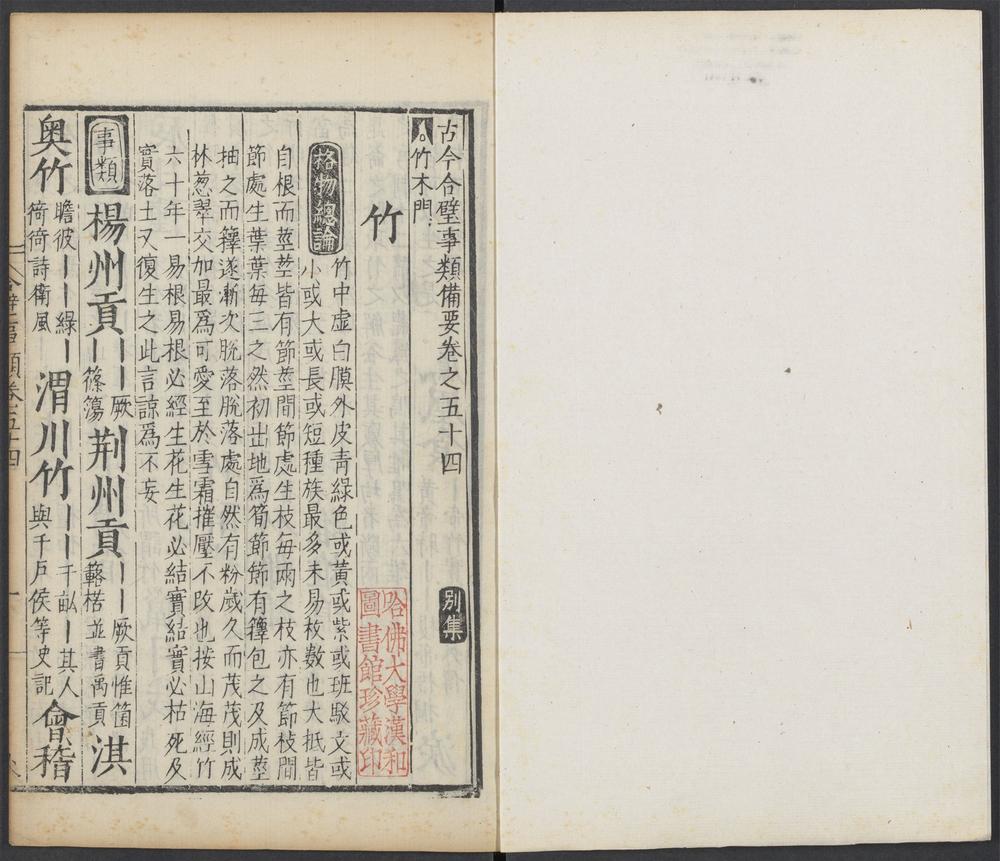 古今合璧事類備要卷之五十四 別集
竹木門
竹
格物總論 竹中虛白膜外皮青綠色或黃或紫或班駁文或
小或大或長或短種族最多未易枚數也大抵皆
自根而莖莖皆有節莖間節處生枝每兩之枝亦有節枝間
節處生葉葉每三之然初出地為筍節節有籜包之及成莖
抽之而籜遂漸次脫落脫落處自然有粉歲久而茂茂則成
林葱翠交加最爲可愛至於雪霜摧壓不改也按山海經竹
六十年一易根易根必經生花生花必結實結實必枯死及
實落土又復生之此言諒爲不妄
事類 楊州貢 丨丨厥丨篠簜 荆州貢 丨丨厥貢惟箘簵楛並書禹貢 淇
奥竹 瞻彼丨丨綠丨猗猗詩衛風 渭川竹 丨丨千畝丨其人與千戶侯等史記 會稽
哈佛大學漢和
圖書館珍藏印